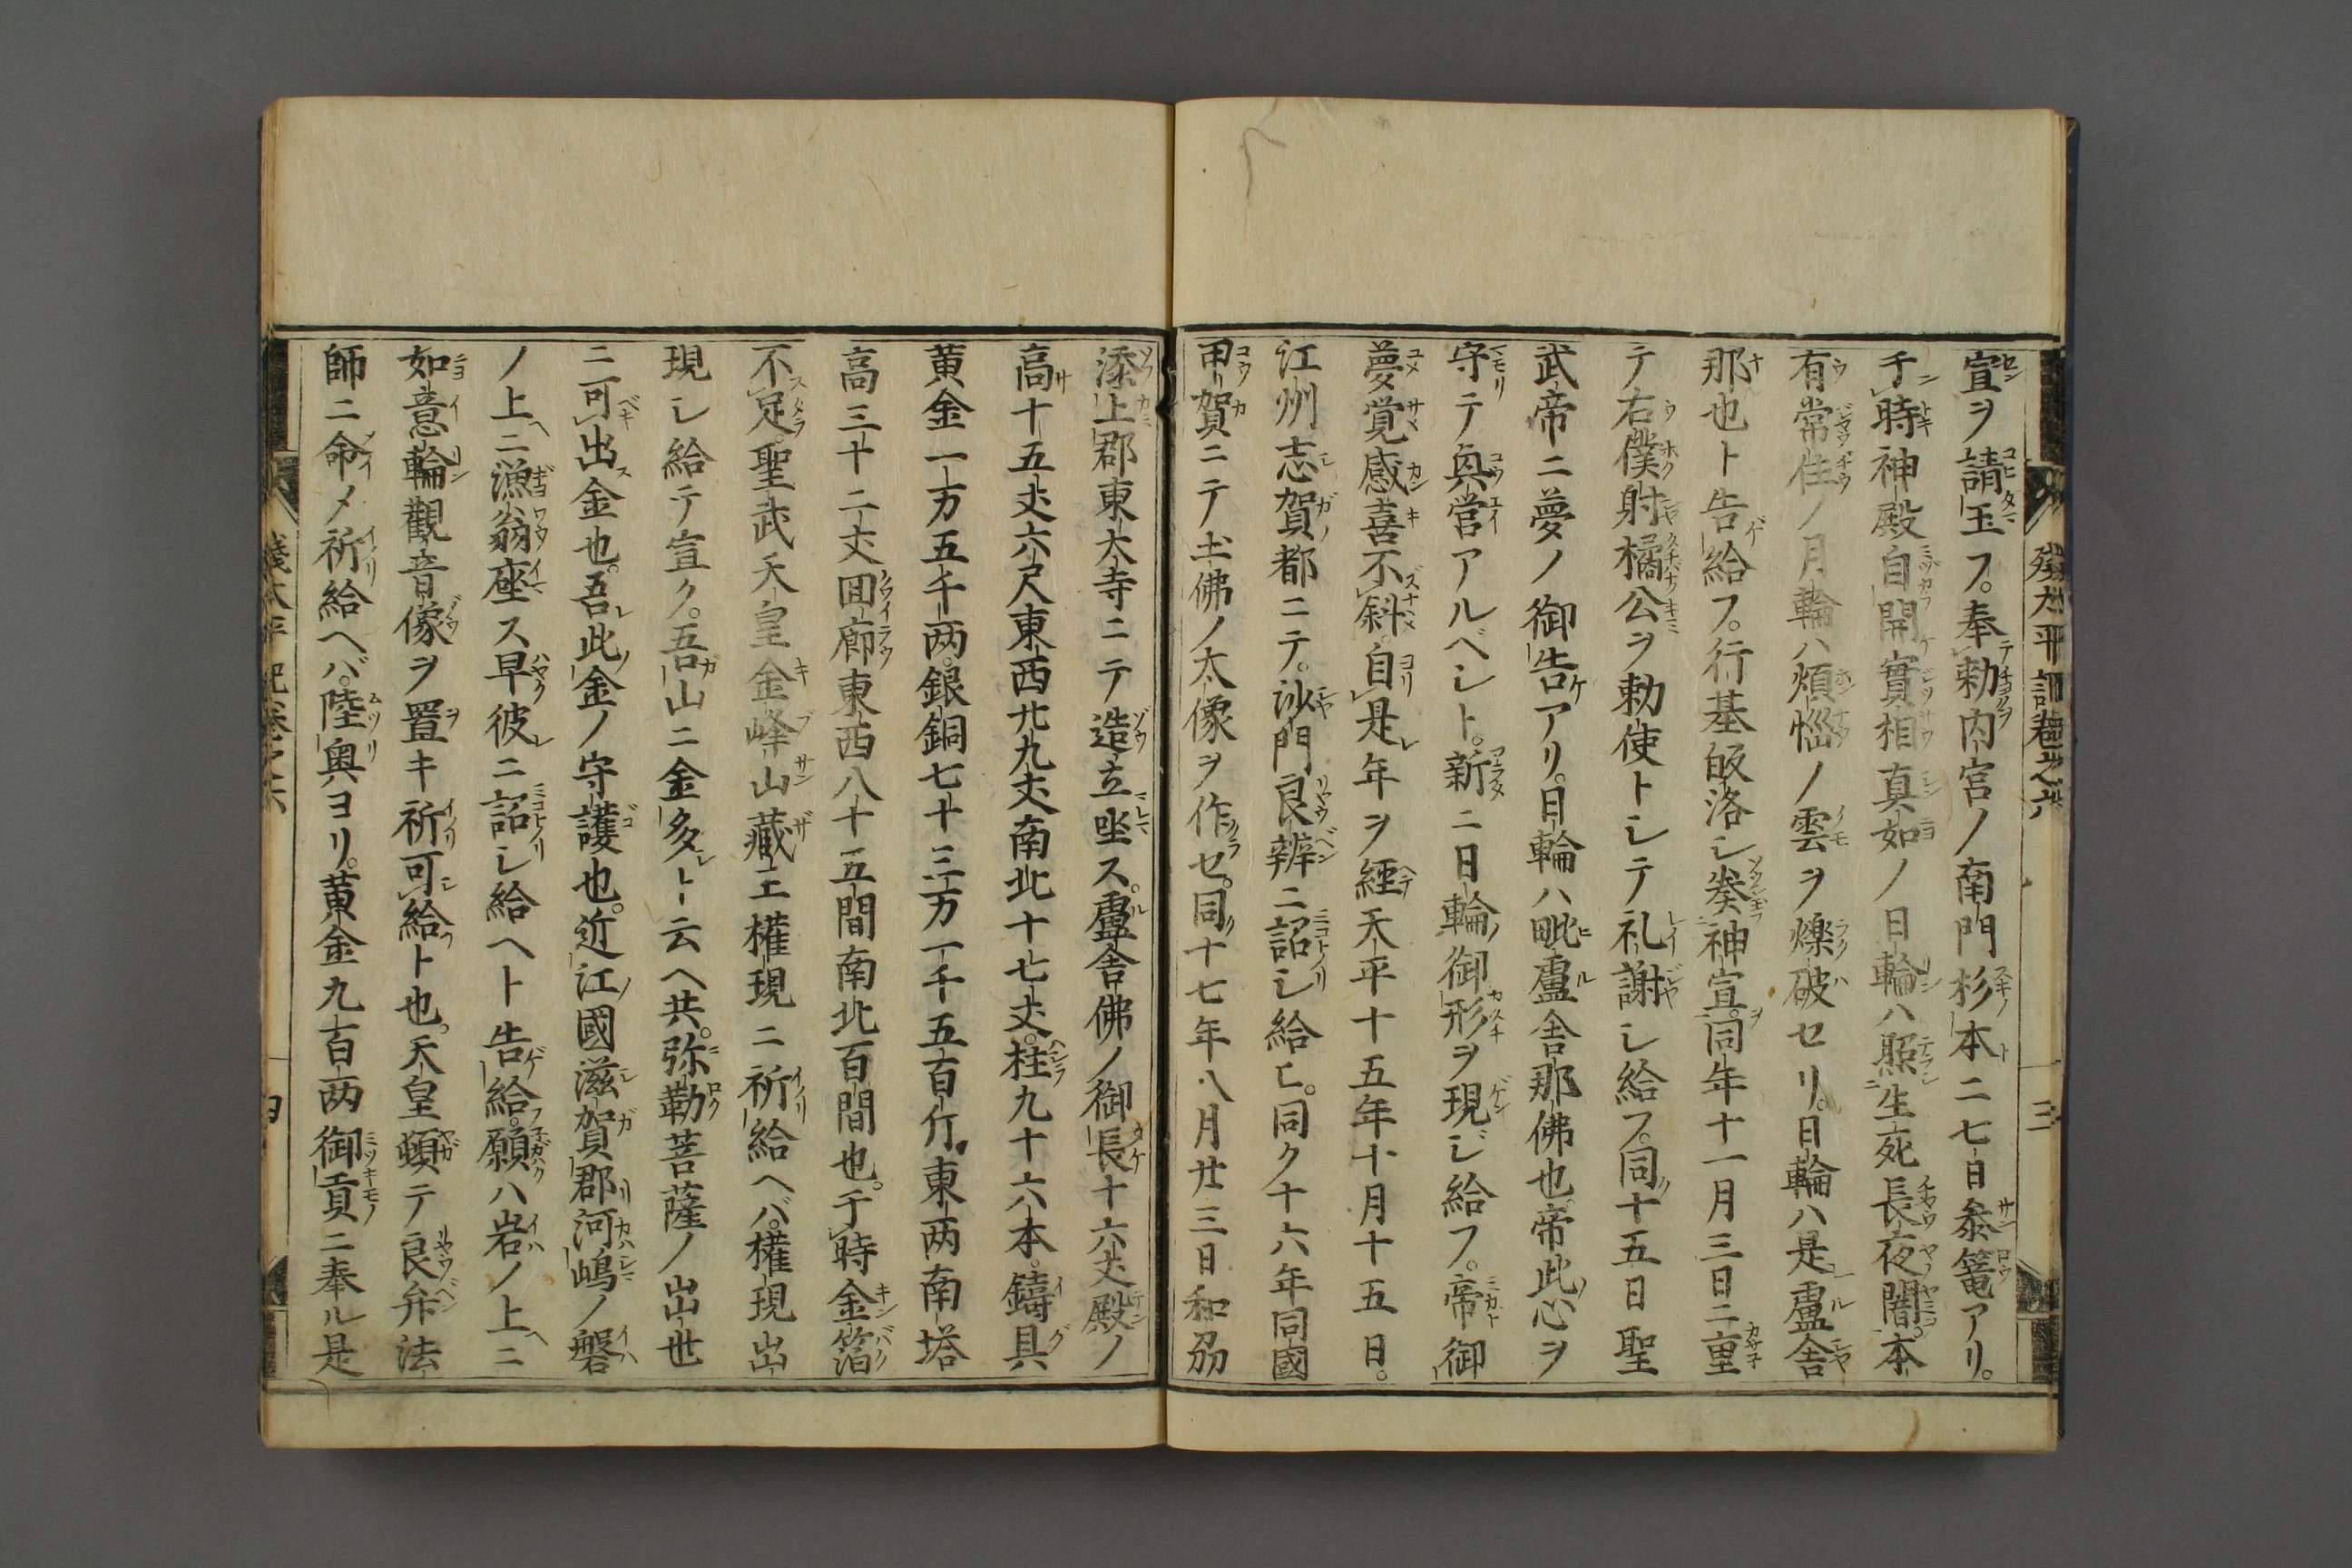 宣ヲ請玉フ。奉勅内宮ノ南門杉本ニ七日叅篭アリ。
于時神殿自開實相真如ノ日輪ハ照生死長夜闇。本
有常住ノ月輪ハ煩惱ノ雲ヲ爍破セリ。日輪ハ是盧舎
那也ト告給フ。行基皈洛シ奏神宣。同年十一月三日二重
テ右僕射橘公ヲ勅使トシテ礼謝シ給フ。同十五日聖
武帝ニ夢ノ御告アリ。日輪ハ毗盧舎那佛也。帝此心ヲ
守テ奐営アルベシト。新ニ日輪御形ヲ現ジ給フ。帝御
夢覚感喜不斜。自是年ヲ經天平十五年十月十五日。
江州志賀都ニテ。沙門良辨ニ詔シ給ヒ。同ク十六年同國
甲賀ニテ土佛ノ大像ヲ作セ。同十七年八月廿三日和刕
添上郡東大寺ニテ造立坐ス。盧舎佛ノ御長十六丈殿ノ
高十五丈六尺東西廿九丈南北十七丈。柱九十六本。鑄具
黄金一万五千两。銀銅七十三万一千五百斤。東两南塔
高三十二丈回廊東西八十五間南北百間也。于時金箔
不足。聖武天皇金峰山藏王權現ニ祈給ヘバ。權現出
現シ給テ宣ク。吾山ニ金多ト云ヘ共。弥勒菩薩ノ出世
ニ可出金也。吾此金ノ守護也。近江國滋賀郡河嶋ノ磐
ノ上ニ漁翁座ス早彼ニ詔シ給ヘト告給。願ハ岩ノ上ニ
如意輪觀音像ヲ置キ祈可給ト也。天皇頓テ良弁法
師ニ命メ祈給ヘバ。陸奥ヨリ。黄金九百两御貢ニ奉ル是